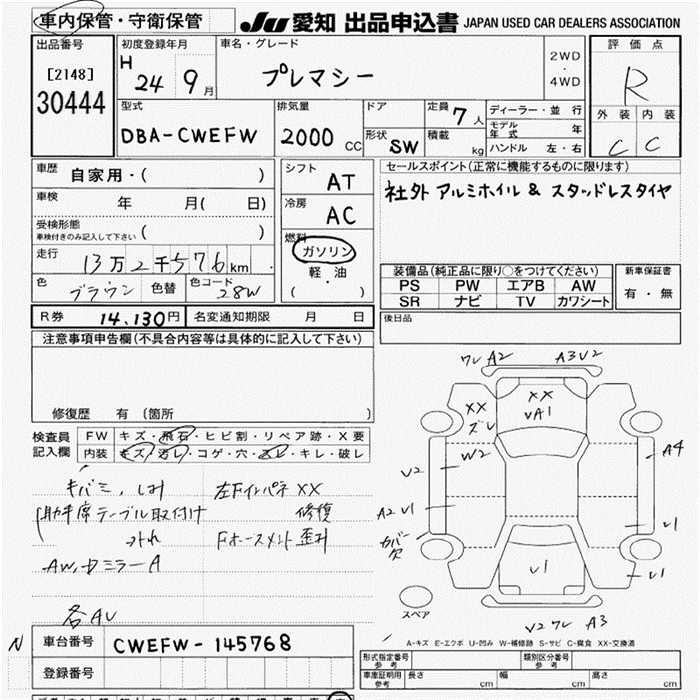 車内保管・守衛保管 JU 愛知 出品申込書 JAPAN USED CAR DEALERS ASSOCIATION
出品番号 初度登録年月 車名・グレード 2WD・4WD 評価点
[2148] H 24 9月 プレマシー R
30444
型式 排気量 ドア 定員 7人 ディーラー・並行 外装 内装
モデル年式 年
DBA-CWEFW 2000 CC 形状 SW 積載 kg ハンドル 左・右 C C
車歴 自家用・( ) シフト AT セールスポイント(正常に機能するものに限ります)
車検 年 月( 日) 冷房 AC 社外 アルミホイル & スタッドレスタイヤ
受検形態
車検付きのみ記入して下さい ( ) 燃料 ガソリン
走行 13万2千576km 軽・油 装備品(純正品に限り○をつけてください) 新車保証書
色 ブラウン 色替 色コード 28W ( ) PS PW エアB AW 有・無
SR ナビ TV カワシート
R券 14,130円 名変通知期限 月 日 後日品
注意事項申告欄(不具合内容等は具体的に記入して下さい)
修復歴 有(箇所 )
検査員記入欄 FW キズ・飛石・ヒビ割・リペア跡・X要
内装 キズ・汚レ・コゲ・穴・スレ・キレ・破レ
キバミ、しみ 左Fインパネ XX
助手席テーブル取付け 修復
Fホースメント歪み
AW、ドミラーA
各AU
ワレ A2 A3 V2
XX ズレ XX VA1
W2 A4
V2
A2 V1 V1
カバー欠
V1 V1
スペア V2 ワレ A3
A-キズ E-エクボ U-凹み W-補修跡 S-サビ C-腐食 XX-交換済
N 車台番号 CWEFW-145768
登録番号
形式指定番号 参考 類別区分番号 参考
車庫証明用 参考 長さ cm 幅 cm 高さ cm